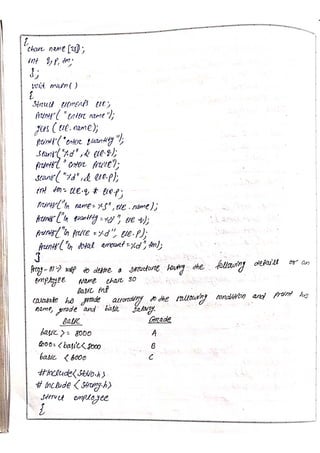 {
char name [30];
int q, p, tm;
};
void main()
{
struct element ele;
printf("enter name");
gets (ele.name);
printf("enter quantity");
scanf("%d", & ele.q);
printf("enter price");
scanf("%d", & ele.p);
int tm = ele.q * ele.p;
printf("\n name = %s", ele.name);
printf("\n quantity = %d", ele.q);
printf("\n price = %d", ele.p);
printf("\n total amount = %d", tm);
}
to define a structure having the following details or an
employee name char 30
basic int
calculate his grade according to the following condition and print his
name, grade and basic salary.
basic Grade
basic >= 8000 A
6000 < basic < 8000 B
basic < 6000 C
#include<stdio.h>
#include<string.h>
struct employee
{